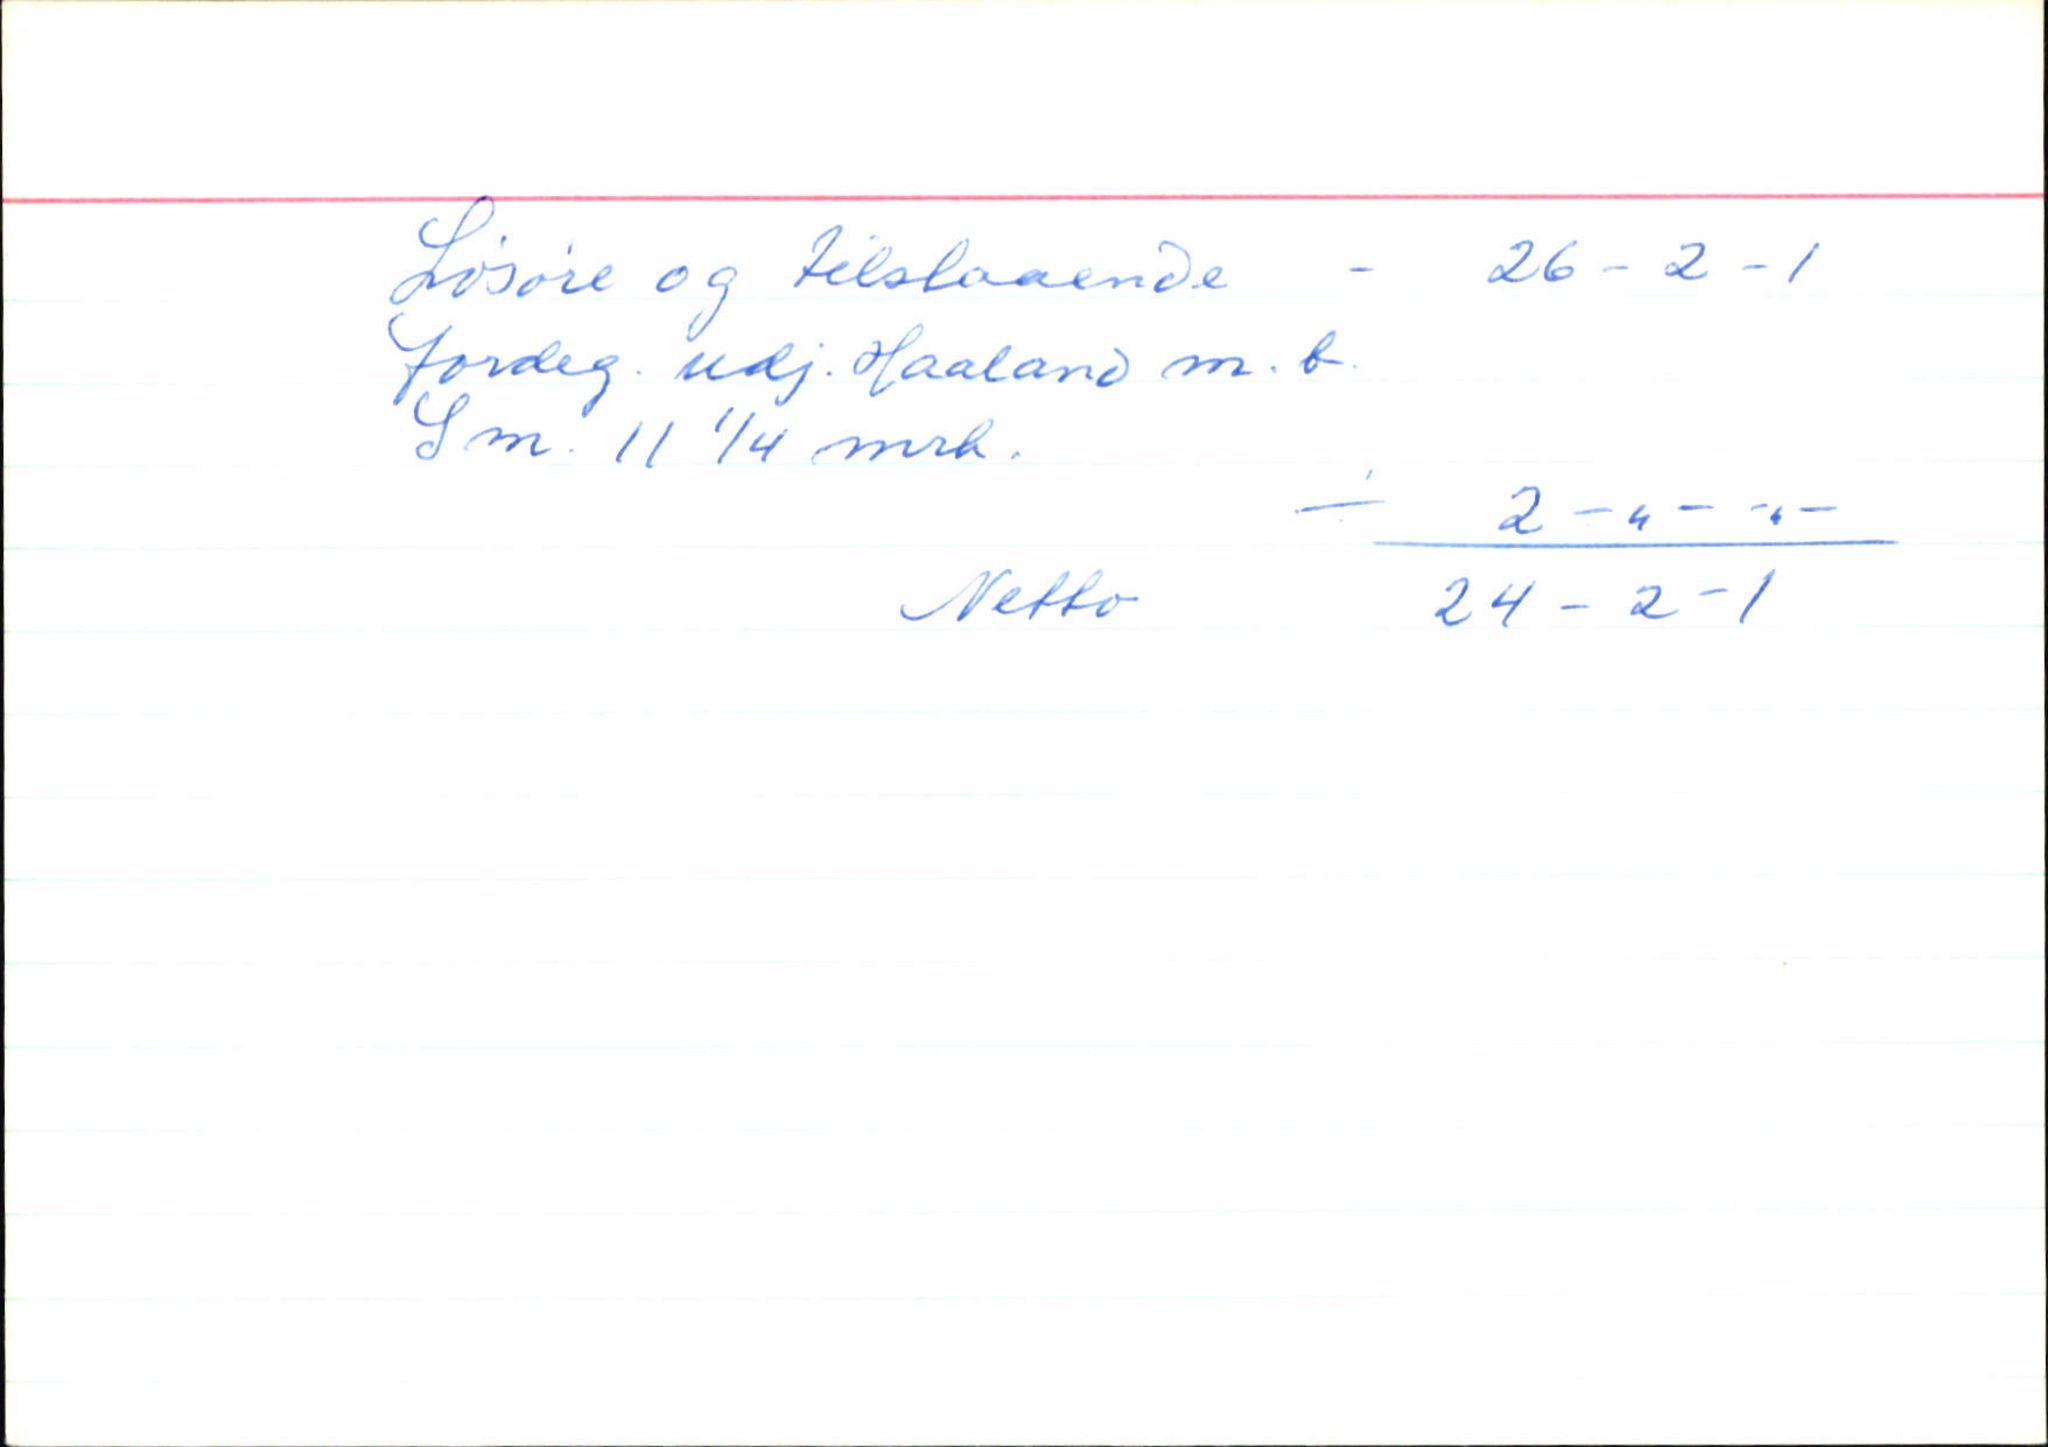 Lösöre og tilstaaende - 26 - 2 - 1
Jordeg. udj. Haaland m. b.
S m. 11 1/4 mrk.
÷ 2 - " - - " -
Netto 24 - 2 - 1